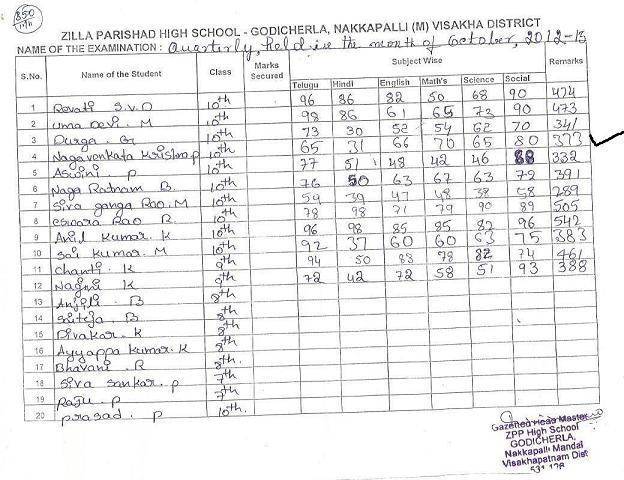 850
ZILLA PARISHAD HIGH SCHOOL - GODICHERLA, NAKKAPALLI (M) VISAKHA DISTRICT
NAME OF THE EXAMINATION : Quarterly, held in the month of October, 2012-13
S.No. Name of the Student Class Marks Secured Subject Wise Remarks
Telugu Hindi English Math's Science Social
1 Revati S.V.D 10th 96 86 82 50 68 90 474
2 Uma Devi. M 10th 98 86 61 65 73 90 473
3 Durga. Gr 10th 73 30 52 54 62 70 341
4 Nagavenkata Krishna P 10th 65 31 66 70 65 80 373
5 Aswini P 10th 77 51 48 42 46 88 332
6 Naga Ratnam B. 10th 76 50 63 67 63 72 391
7 Siva ganga Rao. M 10th 59 39 47 48 38 58 289
8 eswara Rao R. 10th 78 98 71 79 90 89 505
9 Anil Kumar. K 10th 96 98 85 85 82 96 542
10 Sai Kumar. M 10th 92 37 60 60 63 75 383
11 Chanti. K 9th 94 50 83 78 82 74 461
12 Nagini K 9th 72 42 72 58 51 93 388
13 Anjili. B 8th
14 Siteja. B 8th
15 Divakar. K 8th
16 Ayyappa Kumar. K 8th
17 Bhavani. R 8th.
18 Siva Sankar. P 7th
19 Raju. P 7th
20 Prasad. P 10th.
Gazetted Head Master
ZPP High School
GODICHERLA,
Nakkapalli Mandal
Visakhapatnam Dist
531 126